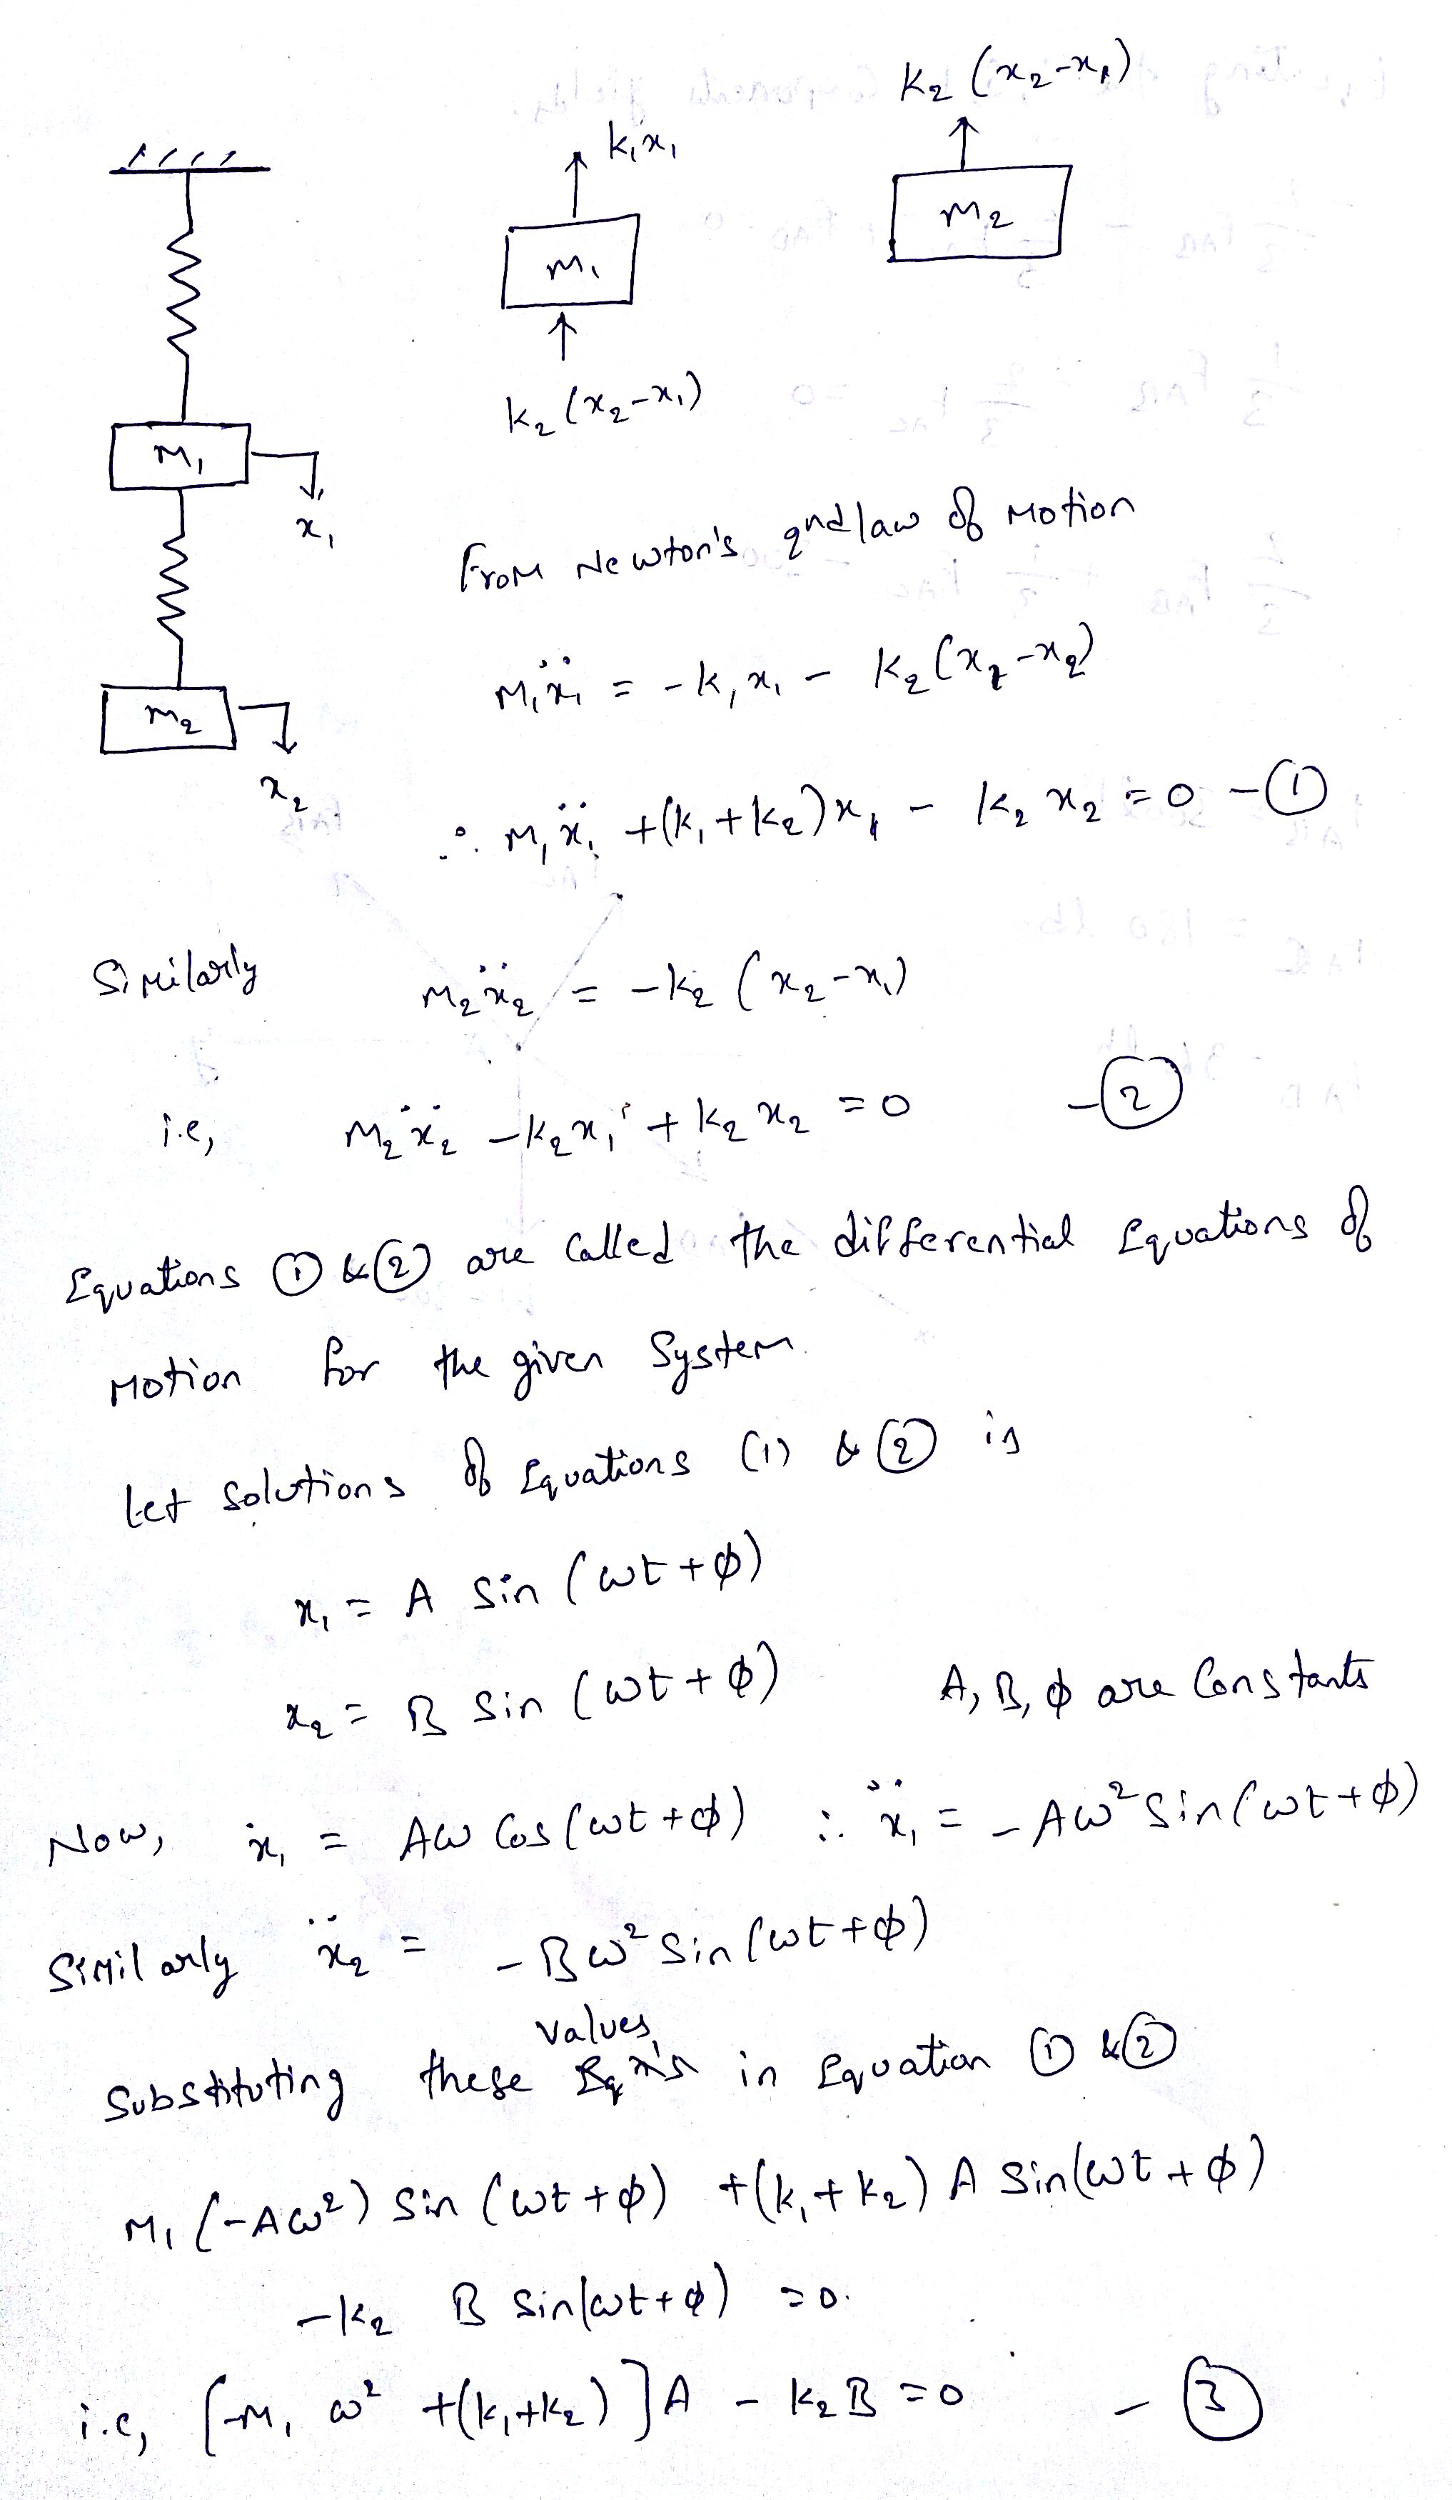 K₂ (x₂-x₁)
k₁x₁
M₂
M₁
K₂ (x₂-x₁)
M₁
x₁
From Newton's 2nd law of Motion
M₁ẍ₁ = -k₁x₁ - K₂(x₁-x₂)
M₂
x₂
∴ M₁ẍ₁ +(k₁+k₂)x₁ - k₂x₂ = 0 -①
Similarly M₂ẍ₂ = -k₂ (x₂-x₁)
i.e, M₂ẍ₂ -k₂x₁ + k₂x₂ = 0 -②
Equations ① & ② are called the differential Equations of
Motion for the given System.
Let solutions of Equations (1) & ② is
x₁ = A Sin (ωt+φ)
x₂ = B Sin (ωt+φ) A, B, φ are Constants
Now, ẋ₁ = Aω Cos(ωt+φ) ∴ ẍ₁ = -Aω² Sin(ωt+φ)
Similarly ẍ₂ = -Bω² Sin(ωt+φ)
values
Substituting these Eqn's in Equation ① & ②
M₁(-Aω²) Sin (ωt+φ) +(k₁+k₂) A Sin(ωt+φ)
-k₂ B Sin(ωt+φ) = 0.
i.e, [-M₁ω² +(k₁+k₂)]A - k₂B = 0 -③